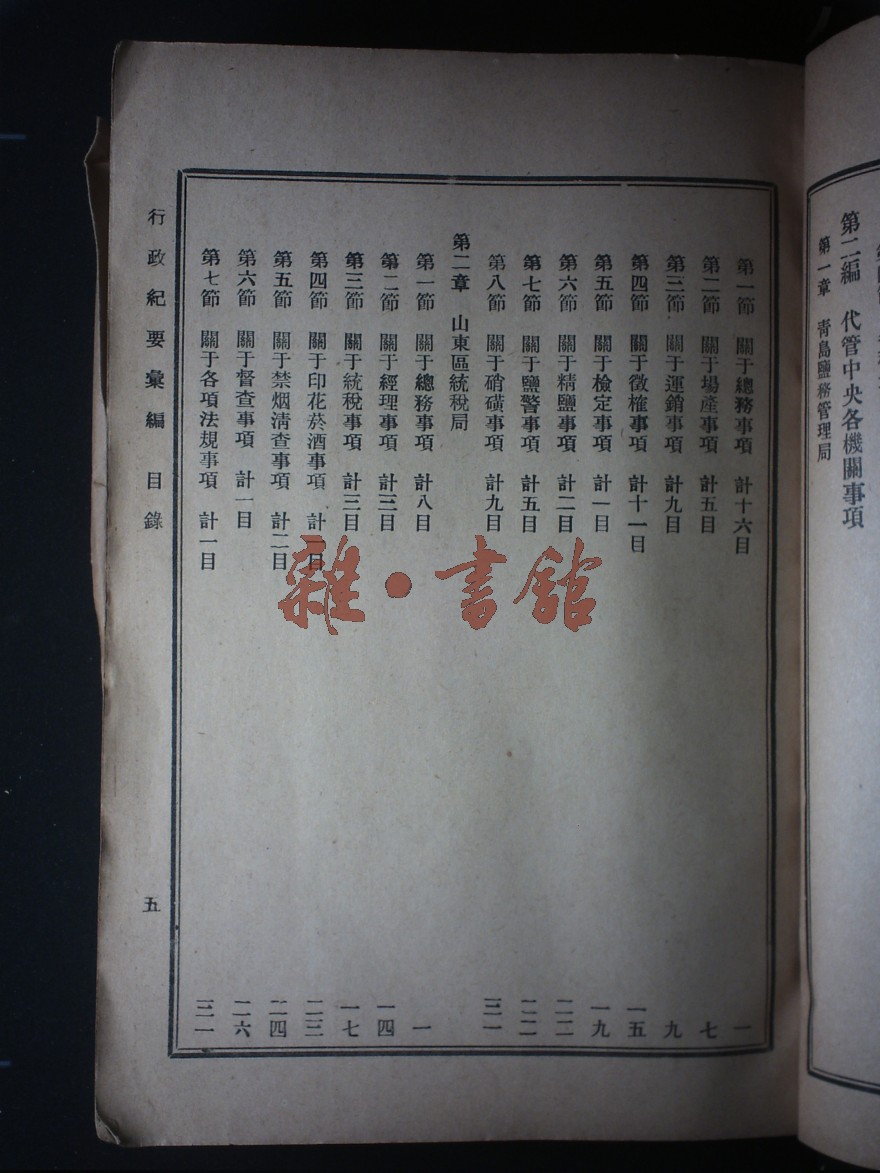 第二編　代管中央各機關事項
第一章　靑島鹽務管理局
第一節　關于總務事項　計十六目　一
第二節　關于場產事項　計五目　七
第三節　關于運銷事項　計九目　九
第四節　關于徵榷事項　計十一目　一五
第五節　關于檢定事項　計一目　一九
第六節　關于精鹽事項　計二目　二二
第七節　關于鹽警事項　計五目　二二
第八節　關于硝磺事項　計九目　三一
第二章　山東區統稅局
第一節　關于總務事項　計八目　一
第二節　關于經理事項　計三目　一四
第三節　關于統稅事項　計三目　一七
第四節　關于印花菸酒事項　計一目　二三
第五節　關于禁烟淸查事項　計二目　二四
第六節　關于督查事項　計一目　二六
第七節　關于各項法規事項　計一目　三一
行政紀要彙編　目錄　五
雜·書館